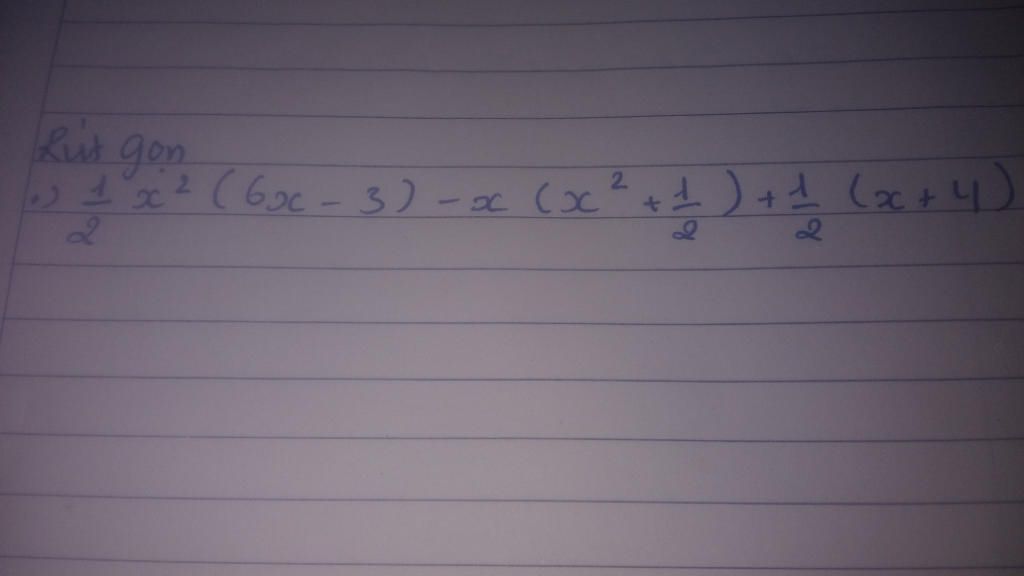 Rút gọn
.) 1/2 x² (6x - 3) - x (x² + 1/2) + 1/2 (x + 4)